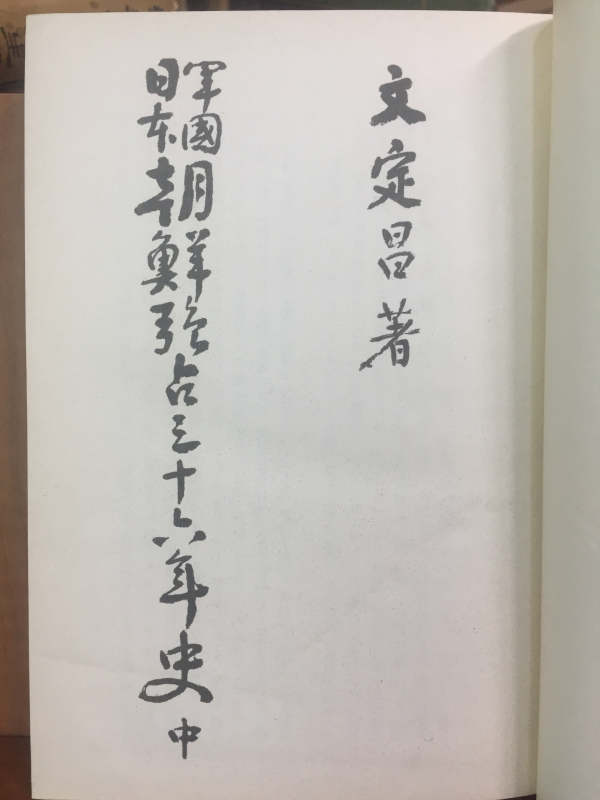 文定昌著
軍國日本朝鮮强占三十六年史 中